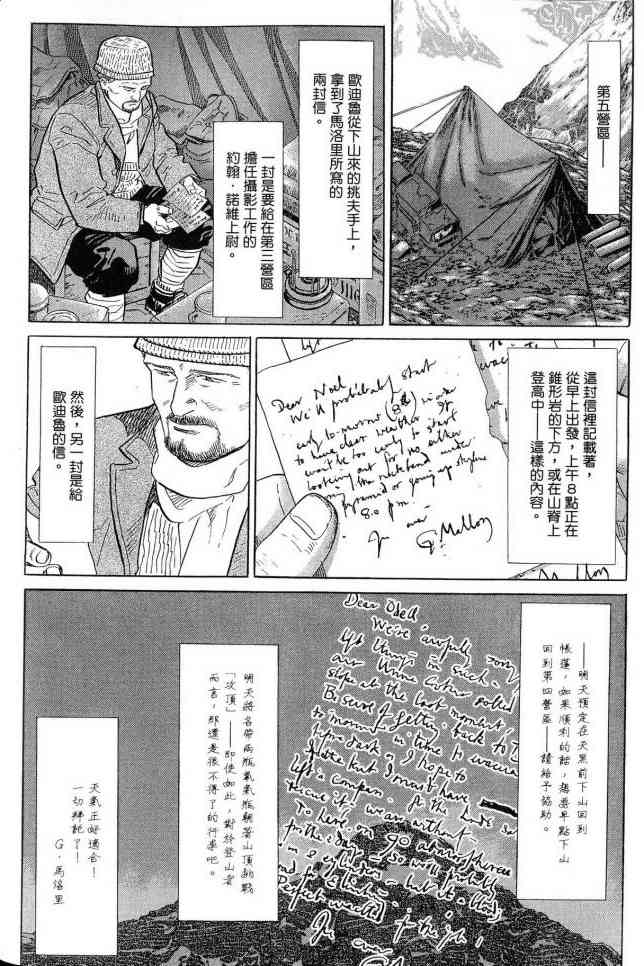 第五營區——
歐迪魯從下山來的挑夫手上，
拿到了馬洛里所寫的
兩封信。
一封是要給在第三營區
擔任攝影工作的
約翰．諾維上尉。
這封信裡記載著，
從早上出發，上午8點正在
錐形岩的下方，或在山脊上
登高中——這樣的內容。
Dear Noel
We'll probably start
early to-morrow (8th) in order
to have clear weather. It
won't be too early to start
looking out for us either
crossing the rockband under
the pyramid or going up skyline
at 8.0 p.m.
G. Mallory
然後，另一封是給
歐迪魯的信。
Dear Odell
We're awfully sorry
left things in such
our Unna Cooker rolled
slope at the last moment.
Be sure of getting back to
to-morrow in time to evacuate
before dark as I hope to
tent but I must have
left a compass
rescue it we are without.
To here on 90 atmospheres
for the 2 days so we'll probably
on 2 cylinders but it's a bloody
load for climbing
Perfect weather for the job!
——明天預定在天黑前下山回到
帳蓬，如果順利的話，想要早點下山
回到第四營區——請給予協助。
明天將各帶兩瓶氧氣瓶朝著山頂挑戰
「攻頂」——即使如此，對於登山者
而言，那還是很不得了的行李吧。
天氣正好適合！
一切拜託了！
G．馬洛里